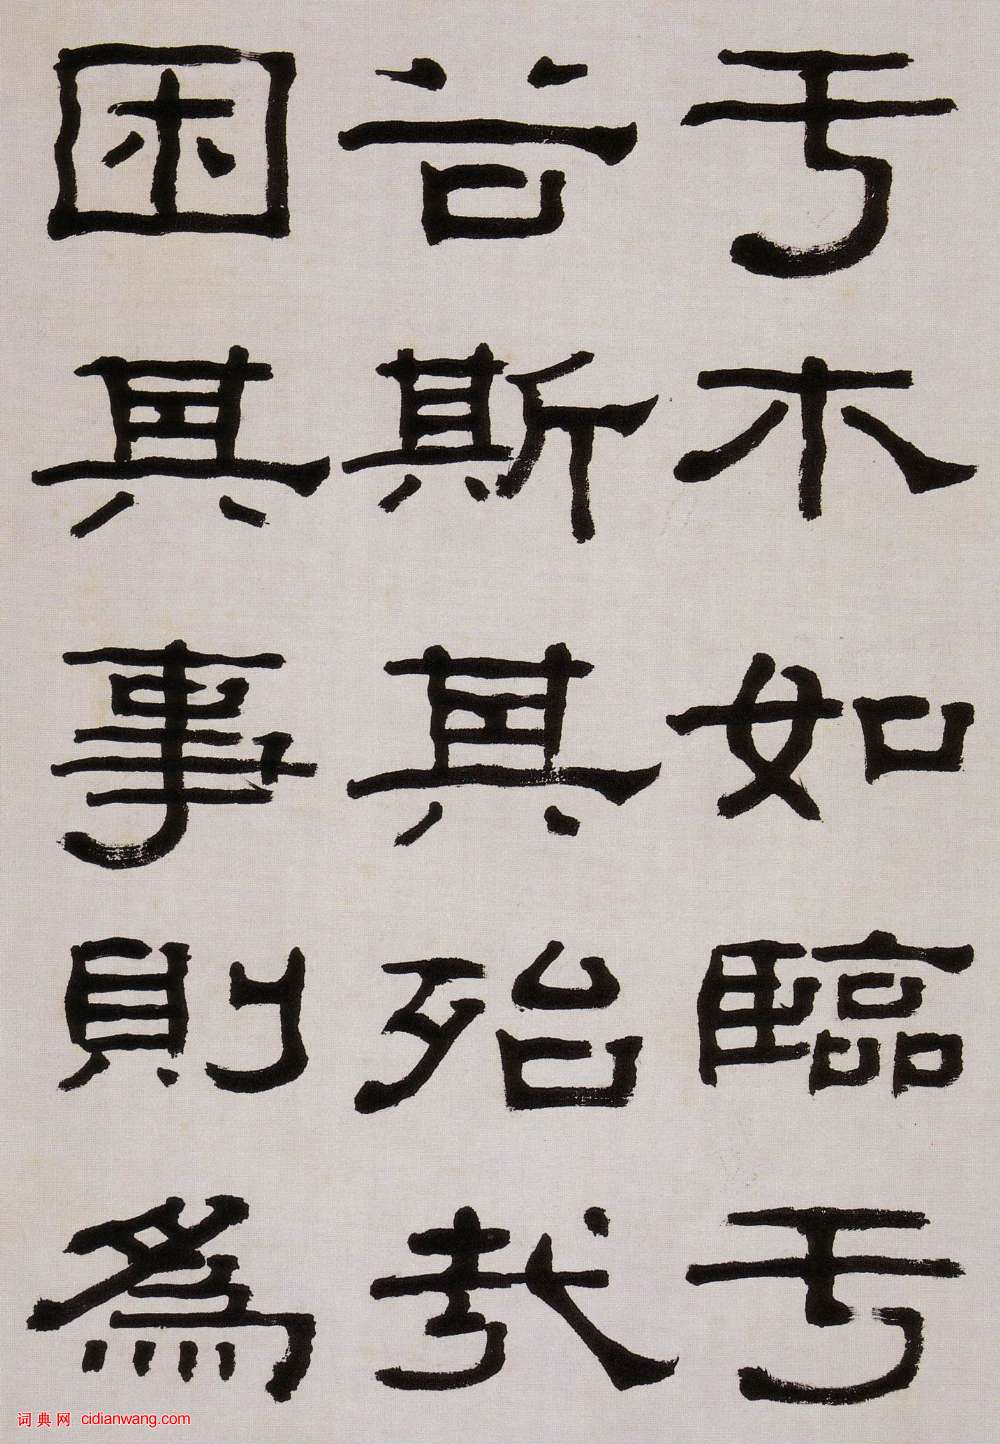 于木如臨于
谷斯其殆哉
困其事則為
词典网 cidianwang.com